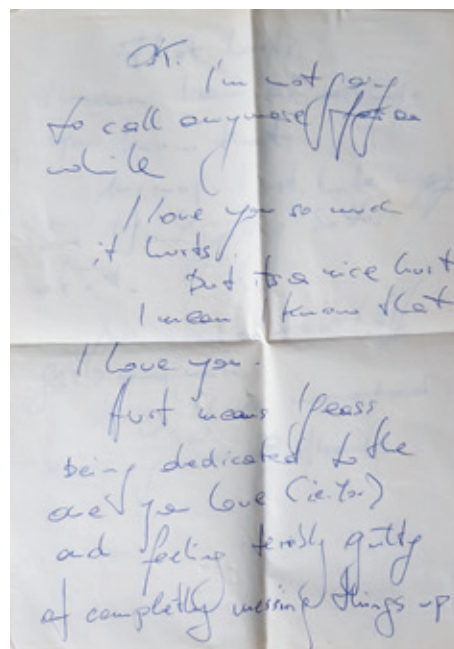 OK.
I'm not going
to call anymore for a
while
I love you so much
it hurts.
But its a nice hurt
I mean I know that
I love you.
Hurt means I guess
being dedicated to the
one you love (i.e. You)
and feeling terribly guilty
of completly messing things up